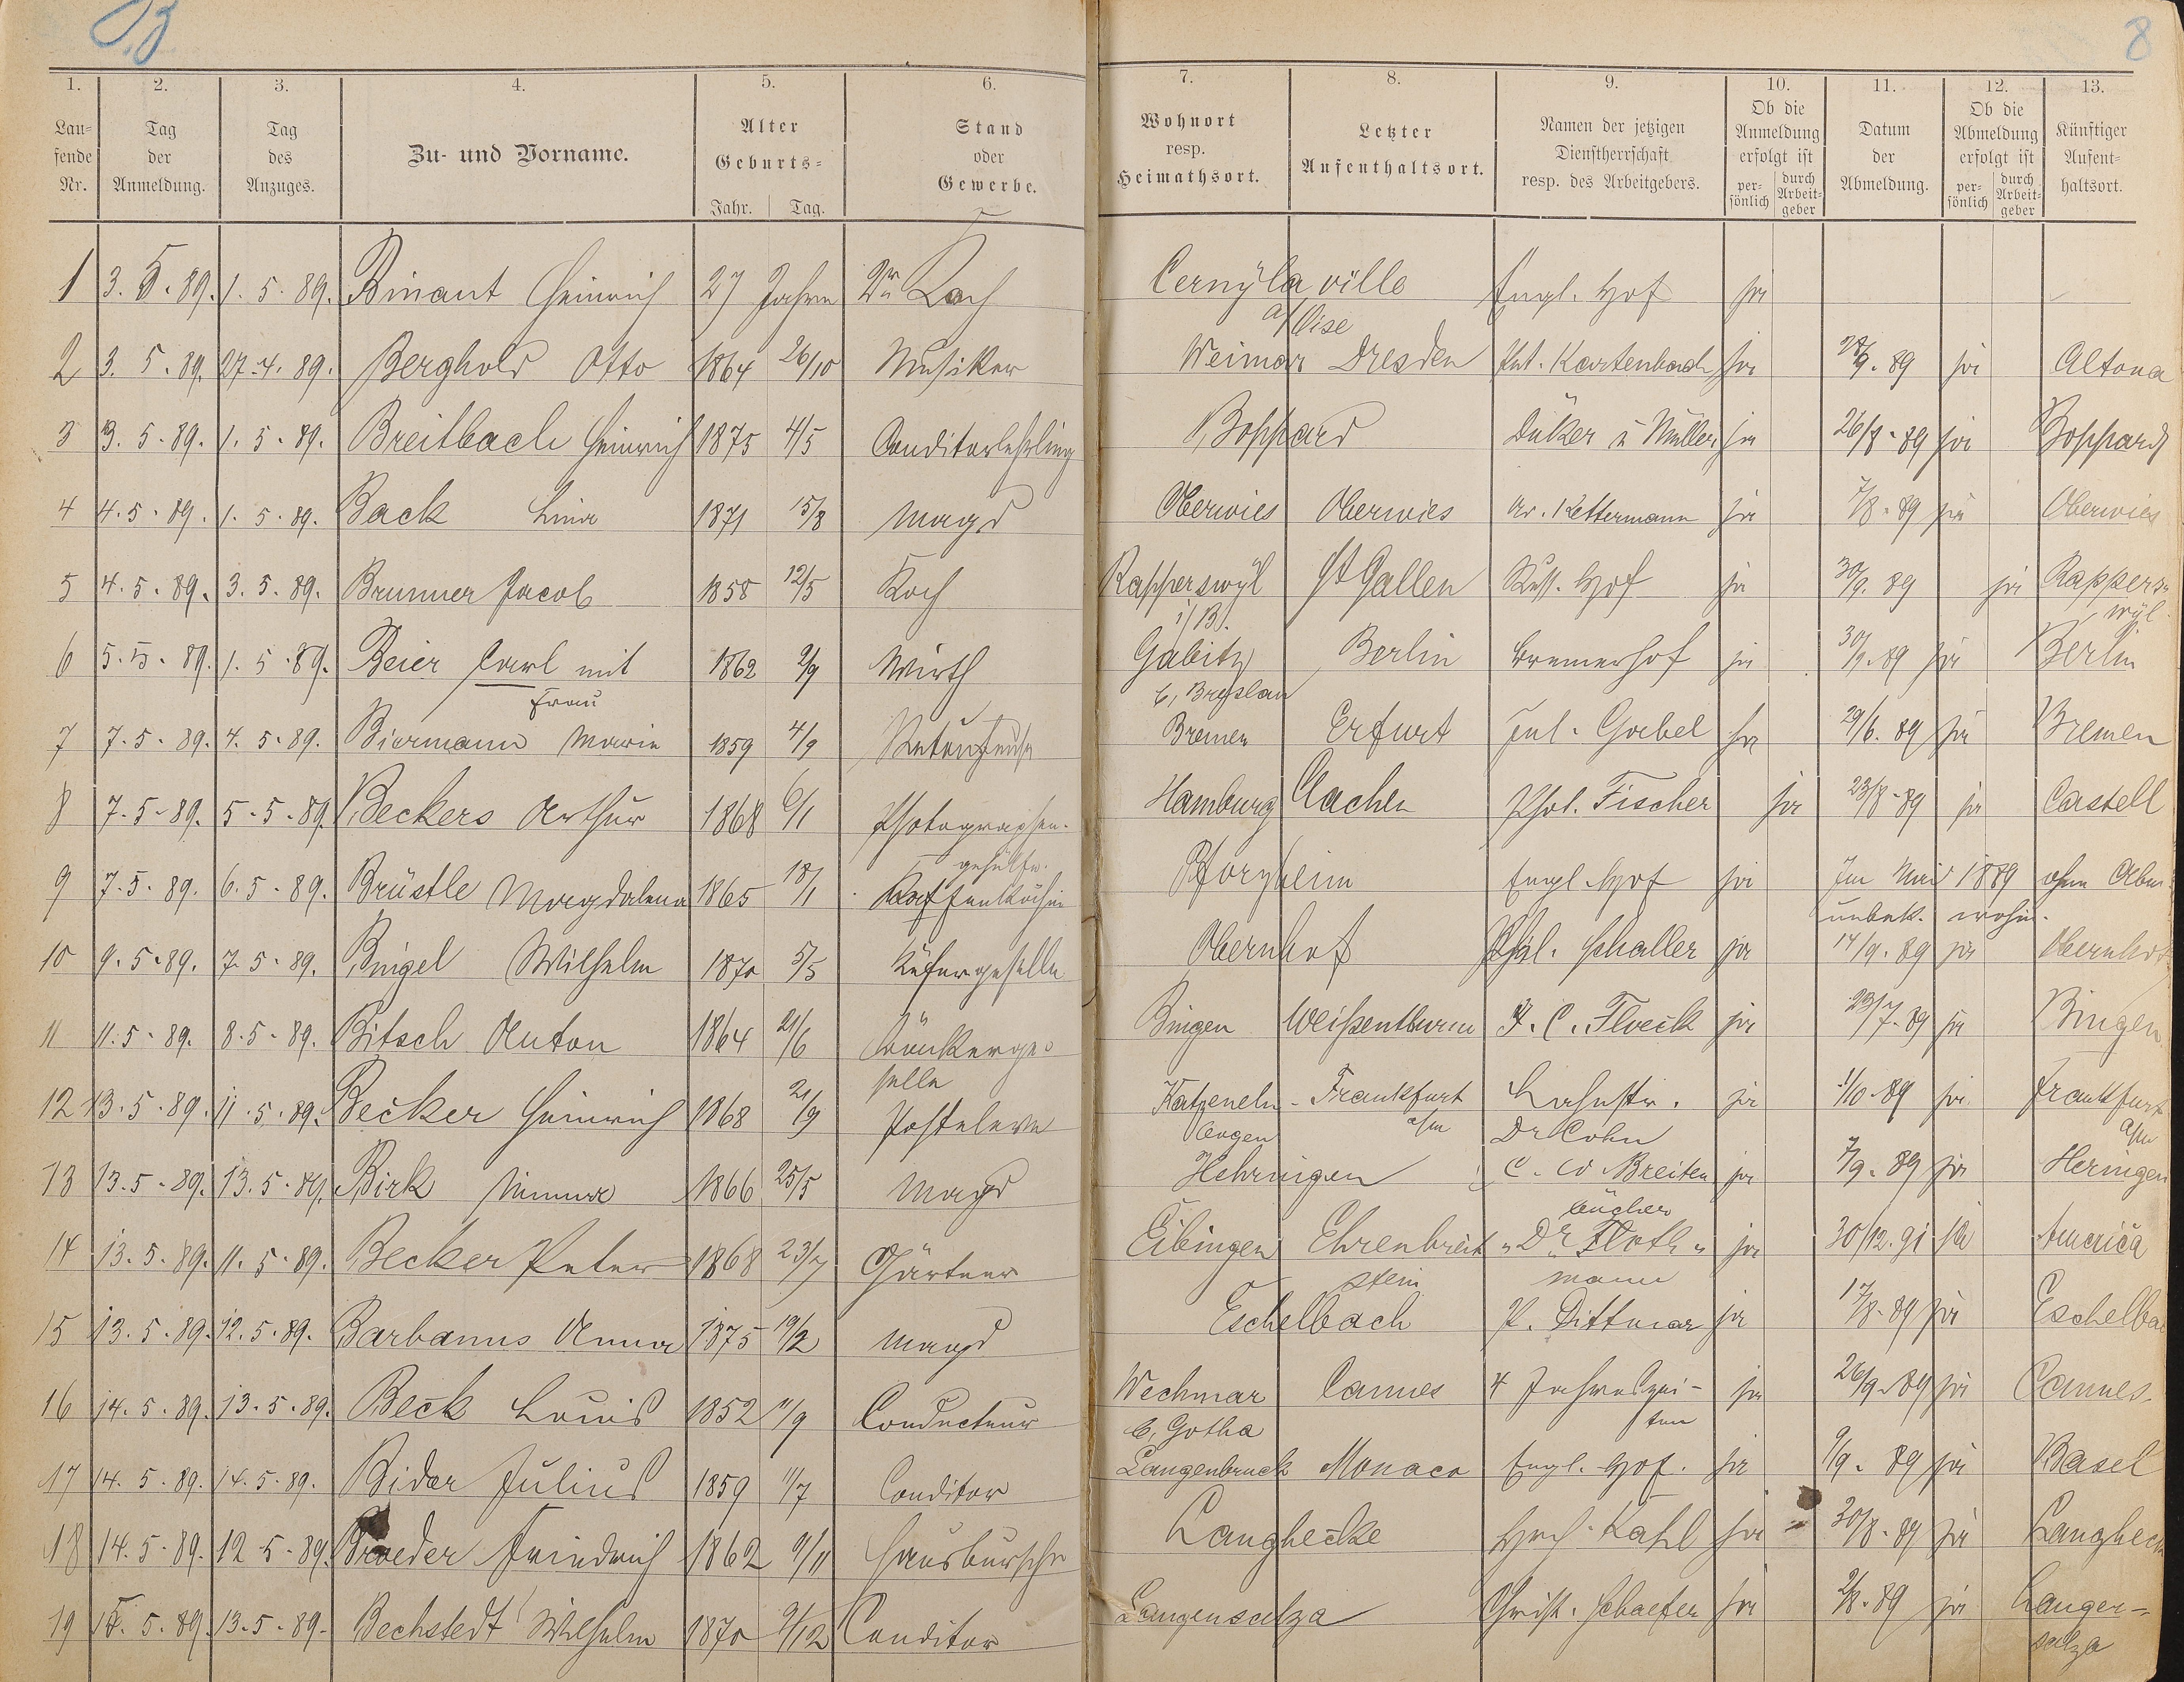 B
8
1. 2. 3. 4. 5. 6. 7. 8. 9. 10. 11. 12. 13.
Lau=fende Nr. Tag der Anmeldung. Tag des Anzuges. Zu- und Vorname. Alter Geburts= Jahr. Tag. Stand oder Gewerbe. Wohnort resp. Heimathsort. Letzter Aufenthaltsort. Namen der jetzigen Dienstherrschaft resp. des Arbeitgebers. Ob die Anmeldung erfolgt ist per=sönlich durch Arbeit=geber Datum der Abmeldung. Ob die Abmeldung erfolgt ist per=sönlich durch Arbeit=geber Künftiger Aufent=haltsort.
1 3. 5. 89. 1. 5. 89. Binant Heinrich 27 Jahre 2n Koch Cernÿla ville Engl. Hof ja
a/Oise
2 3. 5. 89. 27. 4. 89. Berghold Otto 1864 26/10 Musiker Weimar Dresden Kartenbach ja 28/9. 89 ja Altona
3 3. 5. 89. 1. 5. 89. Breitbach Heinrich 1875 4/5 Conditorlehrling Boppard Düker u Müller ja 26/8. 89 ja Boppard
4 4. 5. 89. 1. 5. 89. Back Lina 1871 15/8 Magd Oberwies Oberwies Kettermann ja 7/8. 89 ja Oberwies
5 4. 5. 89. 3. 5. 89. Brunner Jacob 1858 12/5 Koch Rapperswÿl St Gallen Russ. Hof ja 30/9. 89 ja Rappers=
wÿl
6 5. 5. 89. 1. 5. 89. Beier Carl mit 1862 2/9 Wirth Gabitz Berlin Bremerhof ja 30/9. 89 ja Berlin
Frau b, Breslau
7 7. 5. 89. 4. 5. 89. Biermann Marie 1859 4/9 Bremen Erfurt Jul. Goebel ja 29/6. 89 ja Bremen
8 7. 5. 89. 5. 5. 89. Beckers Arthur 1868 6/1 Photographen- Hamburg Aachen Phot. Fischer ja 23/8. 89 ja Castell
gehülfe.
9 7. 5. 89. 6. 5. 89. Brüstle Magdalena 1865 18/1 Kaffeeköchin Pforzheim Engl. Hof ja Im Mai 1889 ohne Abm
unbek. wohin.
10 9. 5. 89. 7. 5. 89. Bingel Wilhelm 1870 5/5 Küfergeselle Obernhof Phil. Schaller ja 14/9. 89 ja Obernhof
11 11. 5. 89. 8. 5. 89. Bitsch Anton 1864 21/6 Tünkerge= Bingen Weißenthurm F. C. Fleeck ja 23/7. 89 ja Bingen
selle
12 13. 5. 89. 11. 5. 89. Becker Heinrich 1868 21/9 Posteleve Katzeneln- Frankfurt Lahnstr. ja 1/10. 89 ja Frankfurt
bogen a/m Dr Cohn a/m
13 13. 5. 89. 13. 5. 89. Birk Minna 1866 25/5 Magd Hehringen C. W Breiten ja 7/9. 89 ja Heringen
bücher
14 13. 5. 89. 11. 5. 89. Becker Peter 1868 23/7 Gärtner Eibingen Ehrenbreit "Dr Floth" ja 30/12. 91 ja America
stein mann
15 13. 5. 89. 12. 5. 89. Barbanus Anna 1875 19/2 Magd Eschelbach P. Dittmar ja 17/8. 89 ja Eschelbac
16 14. 5. 89. 13. 5. 89. Beck Louis 1852 11/9 Conducteur Wechmar Cannes 4 Jahreszei- ja 26/9. 89 ja Cannes.
b, Gotha ten
17 14. 5. 89. 14. 5. 89. Bider Julius 1859 11/7 Conditor Langenbruck Monaco Engl. Hof. ja 9/9. 89 ja Basel
18 14. 5. 89. 12. 5. 89. Broeder Friedrich 1862 9/11 Hausbursche Langhecke Hch. Kahl ja 30/8. 89 ja Langheck
19 15. 5. 89. 13. 5. 89. Bechstedt Wilhelm 1870 9/12 Conditor Langensalza Christ. Schaefer ja 2/8. 89 ja Langen-
salza